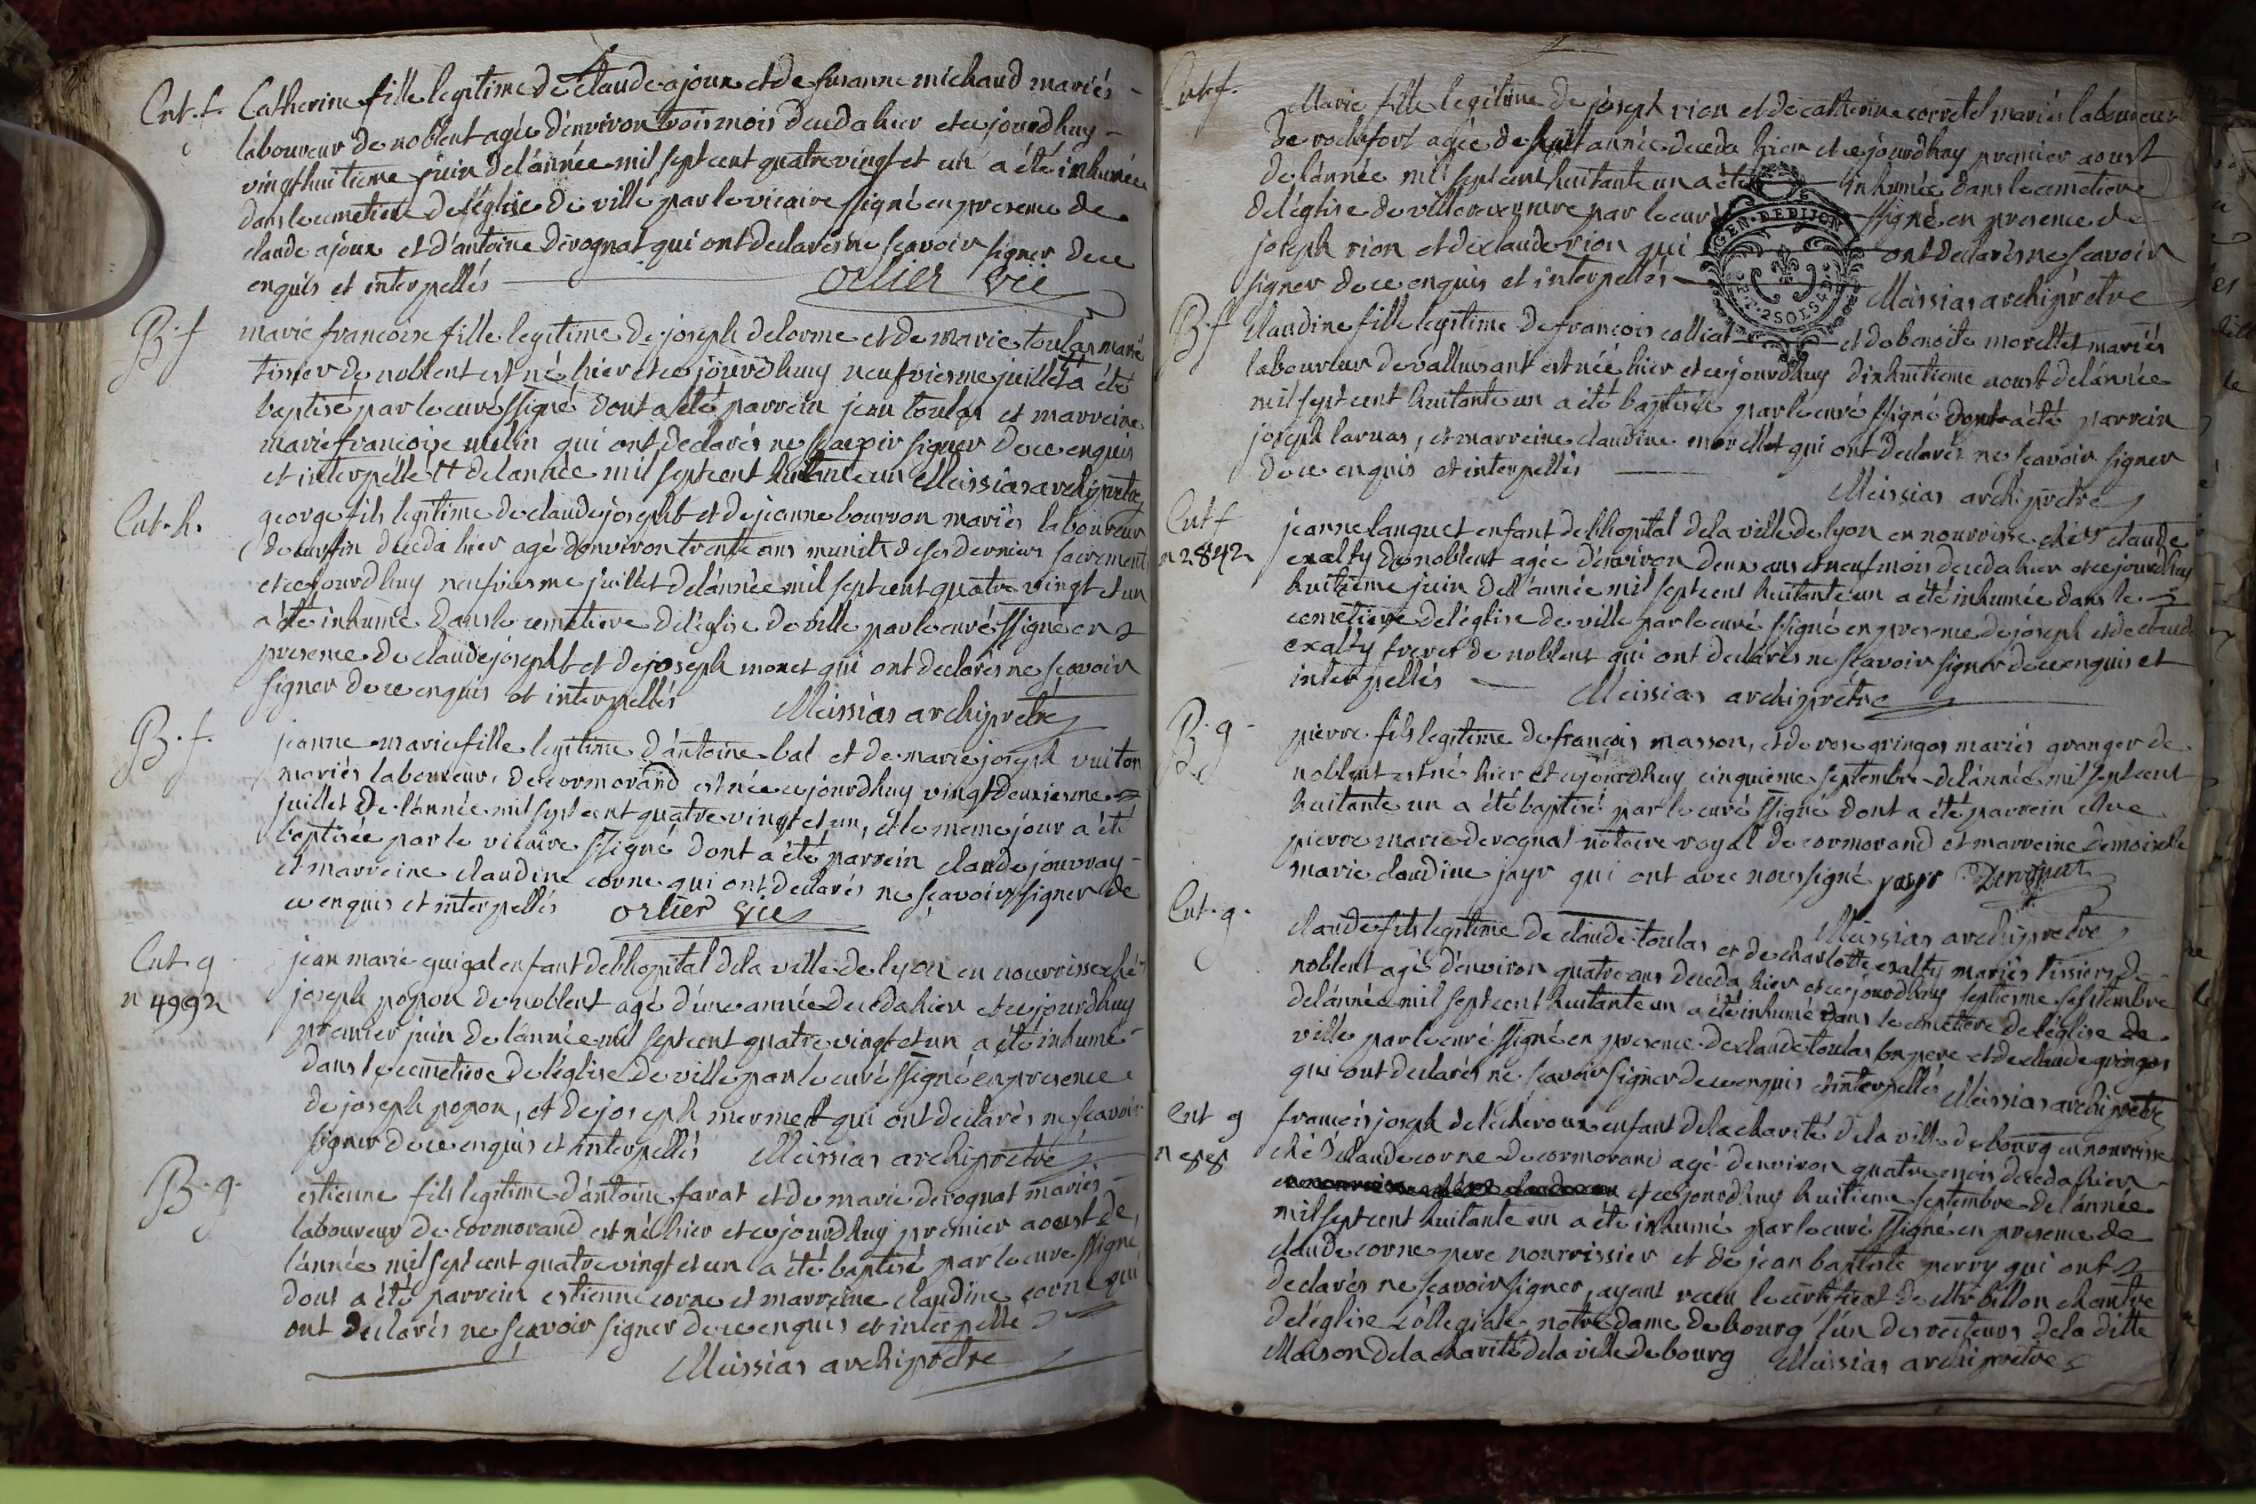 Ent. f. Catherine fille legitime de claude ajoux et de susanne michaud mariés
laboureur de noblent agée d'environ trois mois deceda hier et cejourdhuy
vingthuitieme juin de l'année mil sept cent quatre vingt et un a été inhumée
dans le cemetiere de l'église de ville par le vicaire ssigné en presence de
claude ajoux et d'antoine derognat qui ont declarés ne scavoir signer de ce
enquis et interpellés orlier vic
B. f marie francoise fille legitime de joseph delorme et de marie toulas mariés
tissier de noblent est né hier et cejourdhuy neufviesme juillet a été
baptisé par le curé ssigné dont a été parrein jean toulas et marreine
marie francoise melin qui ont declarés ne scavoir signer de ce enquis
et interpellé tt de lannée mil sept cent huitante un Meissias archiprêtre
Ent. h. george fils legitime de claude josepht et de jeanne bourron mariés laboureur
de deceda hier agé d'environ trente ans munit de ses derniers sacrements
et cejourdhuy neufviesme juillet de l'année mil sept cent quatre vingt et un
a été inhumé dans le cemetiere de l'église de ville par le curé ssigné en
presence de claude josepht et de joseph monet qui ont declarés ne scavoir
signer de ce enquis et interpellés Meissias archiprêtre
B. f. jeanne marie fille legitime d'antoine bal et de marie joseph vuiton
mariés laboureur de cormorand est née cejourdhuy vingtdeuxiesme
juillet de l'année mil sept cent quatre vingt et un, et le meme jour a été
baptisée par le vicaire ssigné dont a été parrein claude jouvray
et marreine claudine corne qui ont declarés ne scavoir signer de
ce enquis et interpellés orlier vic
Ent g jean marie guigal enfant de lhopital de la ville de lyon en nourrisse ché
n 4992 joseph popon de noblent agé d'une année deceda hier et cejourdhuy
premier juin de l'année mil sept cent quatre vingt et un a été inhumé
dans le cemetiere de l'église de ville par le curé ssigné en presence
de joseph popon, et de joseph mermet qui ont declarés ne scavoir
signer de ce enquis et interpellés Meissias archiprêtre
B. g. estienne fils legitime d'antoine favat et de marie derognat mariés
laboureur de cormorand est né hier et cejourdhuy premier aoust de
l'année mil sept cent quatre vingt et un a été baptisé par le curé ssigné
dont a été parrein estienne corne et marreine claudine corne qui
ont declarés ne scavoir signer de ce enquis et interpellé
Meissias archiprêtre
Ent f. Marie fille legitime de joseph rion et de catherine cornetel mariés laboureur
de rochefort agée de huit année deceda hier et cejourdhuy premier aoust
de l'année mil sept cent huitante un a été inhumée dans le cemetiere
de l'église de ville par le curé ssigné en presence de
joseph rion et de claude rion qui ont declarés ne scavoir
signer de ce enquis et interpellés Meissias archiprêtre
GEN. DE DIJON
2 SOLS 4 D
B. f Claudine fille legitime de francois colliat et de benoite morellet mariés
laboureur de valluisant est née hier et cejourdhuy dixhuitieme aoust de l'année
mil sept cent huitante un a été baptisée par le curé ssigné dont a été parrein
joseph larnas, et marreine claudine morellet qui ont declarés ne scavoir signer
de ce enquis et interpellés
Meissias archiprêtre
Ent f jeanne languet enfant de lhopital de la ville de lyon en nourrisse chés claude
n 2842 exalty de noblent agée d'environ deux ans et neuf mois deceda hier et cejourdhuy
huitieme juin de l'année mil sept cent huitante un a été inhumée dans le
cemetiere de l'église de ville par le curé ssigné en presence de joseph et de claude
exalty freres de noblent qui ont declarés ne scavoir signer de ce enquis et
interpellés Meissias archiprêtre
B. g pierre fils legitime de françois masson, et de rose gringos mariés granger de
noblent est né hier et cejourdhuy cinquieme septembre de l'année mil sept cent
huitante un a été baptisé par le curé ssigné dont a été parrein
pierre marie derognat notaire royal de cormorand et marreine demoiselle
marie claudine jayr qui ont avec nous signé jayr Derognat
Meissias archiprêtre
Ent. g. claude fils legitime de claude toulas et de charlotte exalty mariés tissiers de
noblent agé d'environ quatre ans deceda hier et cejourdhuy septieme septembre
de l'année mil sept cent huitante un a été inhumé dans le cemetiere de l'église de
ville par le curé ssigné en presence de claude toulas son pere et de claude gringos
qui ont declarés ne scavoir signer de ce enquis et interpellés Meissias archiprêtre
Ent g francois joseph delecheroux enfant de la charité de la ville de bourg en nourrisse
ché claude corne de cormorand agé d'environ quatre mois deceda hier
et cejourdhuy huitieme septembre de l'année
mil sept cent huitante un a été inhumé par le curé ssigné en presence de
claude corne pere nourrissier et de jean baptiste perry qui ont
declarés ne scavoir signer, ayant receu le certificat de Mr billon chantre
de l'église collegiale notre dame de bourg l'un des recteurs de la ditte
Maison de la charité de la ville de bourg Meissias archiprêtre